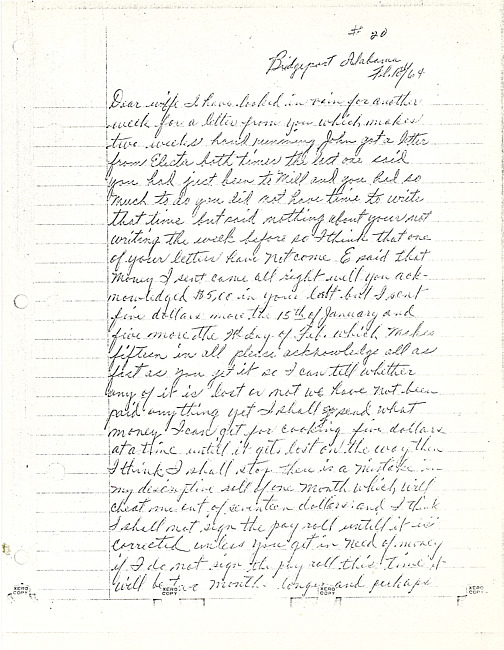 # 20
Bridgeport Alabama
Feb. /64
Dear wife I have looked in vain for another
week for a letter from you which makes
two weeks hand running John got a letter
from Electa both times the last one said
you had just been to Mill and you had so
much to do you did not have time to write
that time but said nothing about your not
writing the week before so I think that one
of your letters have not come. E said that
money I sent came all right well you ack-
nowledged $5,00 in your last but I sent
five dollars more the 15th of January and
five more the day of Feb. which makes
fifteen in all please acknowledge all as
fast as you get it so I can tell whether
any of it is lost or not we have not been
paid anything yet I shall send what
money I can get for cooking five dollars
at a time untill it gets lost on the way then
I think I shall stop there is a mistake in
my descriptive roll of one month which will
cheat me out of seventeen dollars and I think
I shall not sign the pay roll untill it is
corrected unless you get in need of money
if I do not sign the pay roll this time it
will be two month longer and perhaps
XERO COPY XERO COPY XERO COPY XERO COPY